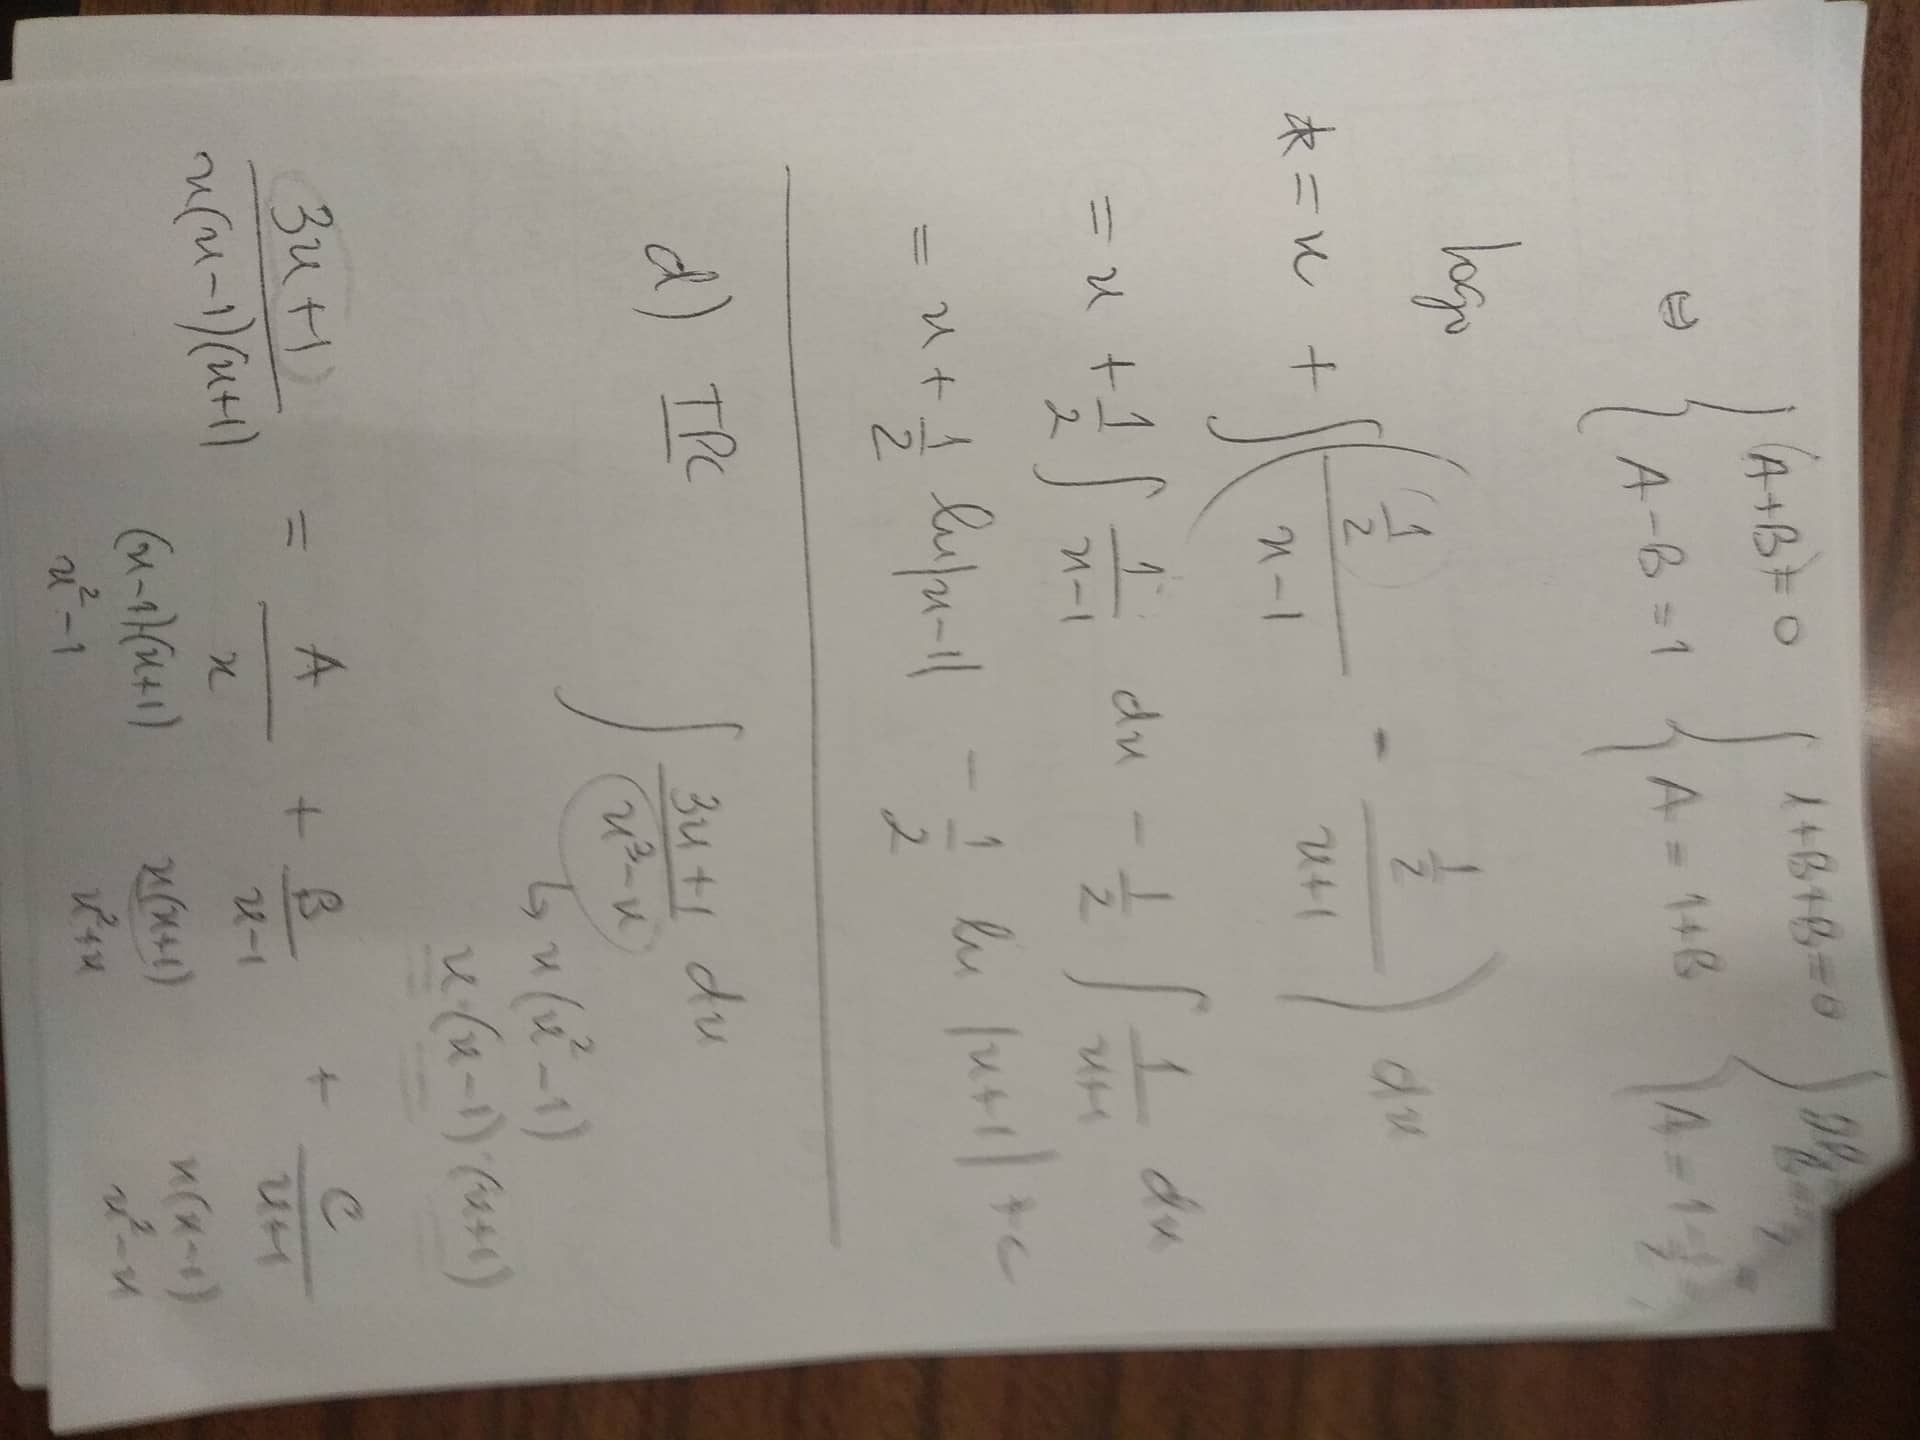 ⇔ { (A+B)=0 { 1+B+B=0 { 2B
A-B=1 A = 1+B A = 1-1/2
logo
* = x + ∫ ( (1/2)/(x-1) - (1/2)/(x+1) ) dx
= x + 1/2 ∫ 1/(x-1) dx - 1/2 ∫ 1/(x+1) dx
= x + 1/2 ln|x-1| - 1/2 ln |x+1| + c
d) TPC ∫ (3x+1)/(x³-x) dx
↳ x(x²-1)
x·(x-1)·(x+1)
(3x+1)/(x(x-1)(x+1)) = A/x + B/(x-1) + C/(x+1)
(x-1)(x+1) x(x+1) x(x-1)
x²-1 x²+x x²-x